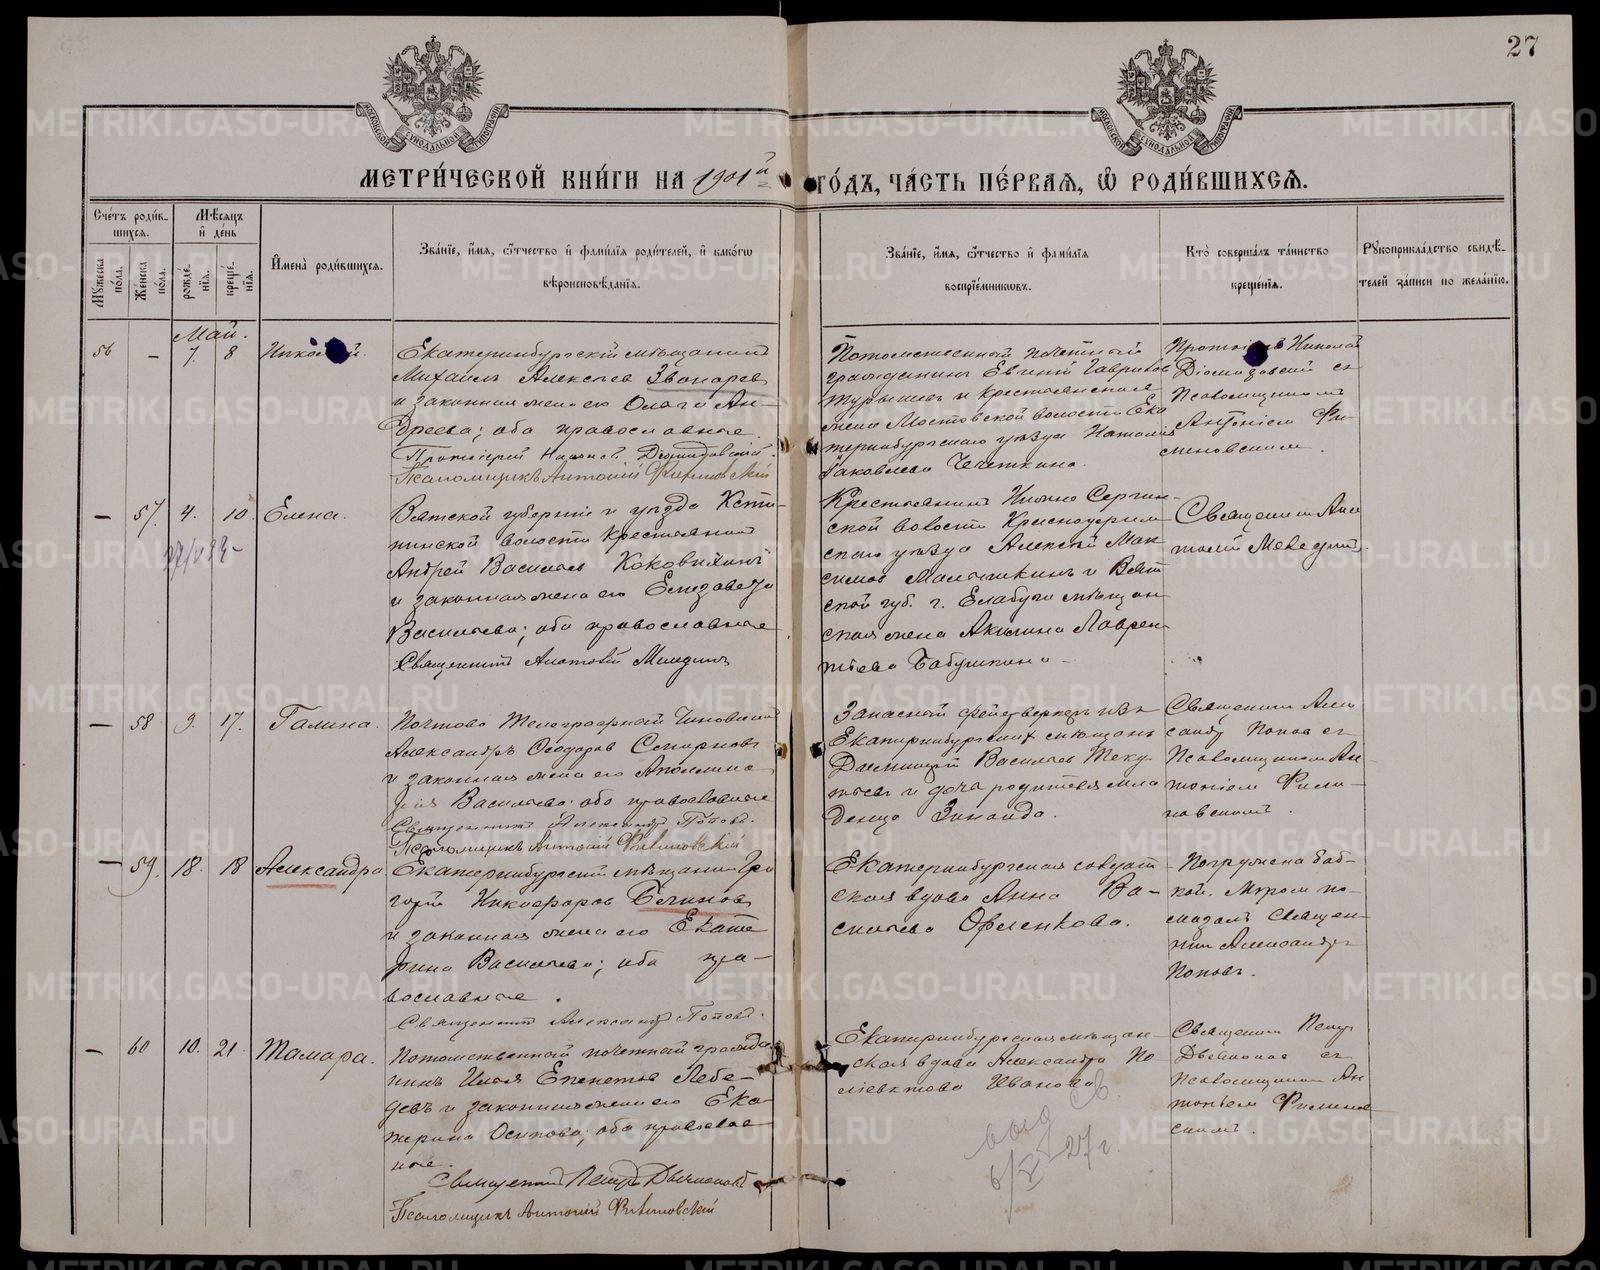 27
МЕТРИ́ЧЕСКОЙ КНИ́ГИ НА 1901й ГО́ДЪ, ЧА́СТЬ ПЕ́РВАЯ, Ѿ РОДИ́ВШИХСЯ.
Сче́тъ роди́в-
шихся.
Мужеска по́ла.
Же́нска по́ла.
Мѣ́сяцъ
и де́нь
рожде́-
нїя.
креще́-
нїя.
И́мена̀ роди́вшихся.
Зва́нїе, и́мя, ѻ҆́тчество и фами́лїя роди́телей, и како́гѡ
вѣроисповѣ́данїя.
Зва́нїе, и́мя, ѻ҆́тчество и фами́лїя
воспрїе́мникѡвъ.
Кто̀ соверша́лъ та́инство
креще́нїя.
Рꙋкоприкла́дство свидѣ́-
телей за́писи по жела́нїю.
Май.
56 – 7. 8 Николай.
Екатеринбургскій мѣщанинъ
Михаилъ Алексѣевъ Звонаревъ
и законная жена его Ольга Ан-
дреева; оба православные.
Протоіерей Николай Діомидовскій.
Псаломщикъ Антоній Филиповскій
Потомственный почетный
гражданинъ Евгеній Гавриловъ
и крестьянская
жена Мостовской волости Ека
теринбургскаго уѣзда Наталія
Іаковлева Чечеткина.
Протоіерей Николай
Діомидовскій съ
Псаломщикомъ
Антоніемъ Фи-
липовскимъ.
– 57. 4. 10. Елена.
Вятской губерніи и уѣзда Ксти-
нинской волости крестьянинъ
Андрей Васильевъ Коковихинъ
и законная жена его Елизавета
Васильева; оба православные
Священникъ Анатолій
Крестьянинъ Нижне Сергин-
ской волости Красноуфим-
скаго уѣзда Алексѣй Мак-
симовъ Малышкинъ и Вят
ской губ. г. Елабуги мѣщан-
ская жена Акилина Лаврен-
тьева Бабушкина.
Священникъ Ана
толій
– 58 9. 17. Галина.
Почтово Телеграфный Чиновникъ
Александръ Ѳеодоровъ Смирновъ
и законная жена его Аполлина
рія Васильева; оба православные
Священникъ Александръ Поповъ.
Псаломщикъ Антоній Филиповскій
Запасный фейерверкеръ изъ
Екатеринбургскихъ мѣщанъ
Димитрій Васильевъ Теку-
тьевъ и дочь родителя мла
денца Зинаида.
Священникъ Алек
сандръ Поповъ съ
Псаломщикомъ Ан-
тоніемъ Фили-
повскимъ.
– 59. 18. 18 Александра
Екатеринбургскій мѣщанинъ Гри
горій Никифоровъ Блиновъ
и законная жена его Екате
рина Васильева; оба пра-
вославные.
Священникъ Александръ Поповъ.
Екатеринбургская солдат
ская вдова Анна Ва-
сильева Офленкова.
Погружена баб-
кой. Муромъ по-
мазалъ Священ-
никъ Александръ
Поповъ.
– 60 10. 21. Тамара.
Потомственный почетный гражда
нинъ Илья Епенетовъ Лебе-
девъ и законная жена его Ека
терина Осипова; оба православ
ные.
Священникъ Петръ
Псаломщикъ Антоній Филиповскій
Екатеринбургская мѣщан-
ская вдова Александра По
ліевктова Иванова
Священникъ Петръ
съ
Псаломщикомъ Ан
тоніемъ Филипов
скимъ.
выд св.
6/V 27 г.